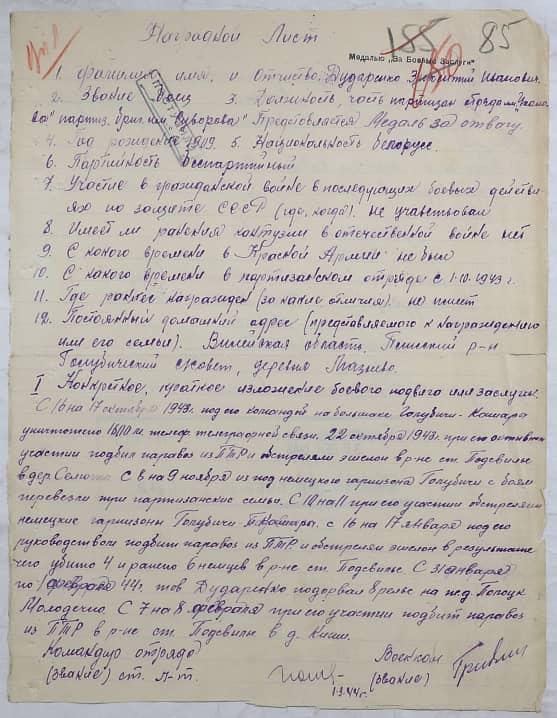 155 85
150
Наградной Лист
Медалью „За Боевые Заслуги"
1. фамилия, имя, и отчество. Дударенко Иванович.
2. Звание боец 3. Должность, часть партизан отряда
ва" партиз. бриг. им "Суворова" Представляется Медаль за отвагу.
4. Год рождения 1919. 5. Национальность белорусс.
6. Партийность беспартийный
7. Участие в гражданской войне в последующих боевых действи-
ях по защите СССР (где, когда). не учавствовал
8. Имеет ли ранения контузии в отечественной войне нет
9. С какого времени в Красной Армии не был
10. С какого времени в партизанском отряде с 1-10-1943 г.
11. Где раннее награжден (за какие отличия). не имеет
12. Постоянный домашний адрес (представляемого к награждению
или его семьи). Вилейская область, р-н
Голубический с/совет, деревня
I Конкретное, краткое изложение боевого подвига или заслуги.
С 16 на 17 октября 1943г. под его командой на большаке Голубичи-
уничтожено телеграфной связи. 22 октября 1943г. при его активном
участии подбит паравоз из ПТР и обстрелян эшелон в р-не ст. Подсвилье
в дер. С 8 на 9 ноября из под немецкого гарнизона Голубичи с боем
перевезли три партизанские семьи. С 10 на 11 при его участии обстреляли
немецкие гарнизоны Голубичи с 16 на 17 января под его
руководством подбит паравоз из ПТР и обстрелян эшелон в результате
чего убито 4 и ранено 6 немцев в р-не ст. Подсвилье С 31 января
по 1 февраля 44г. тов Дударенко подорвал 8 рельс на ж.д. Полоцк
Молодечно. С 7 на 8 февраля при его участии подбит паравоз
из ПТР в р-не ст. Подсвилье в д.
Командир отряда Военком
(звание) ст. л-т. (звание)
1.3.44г.